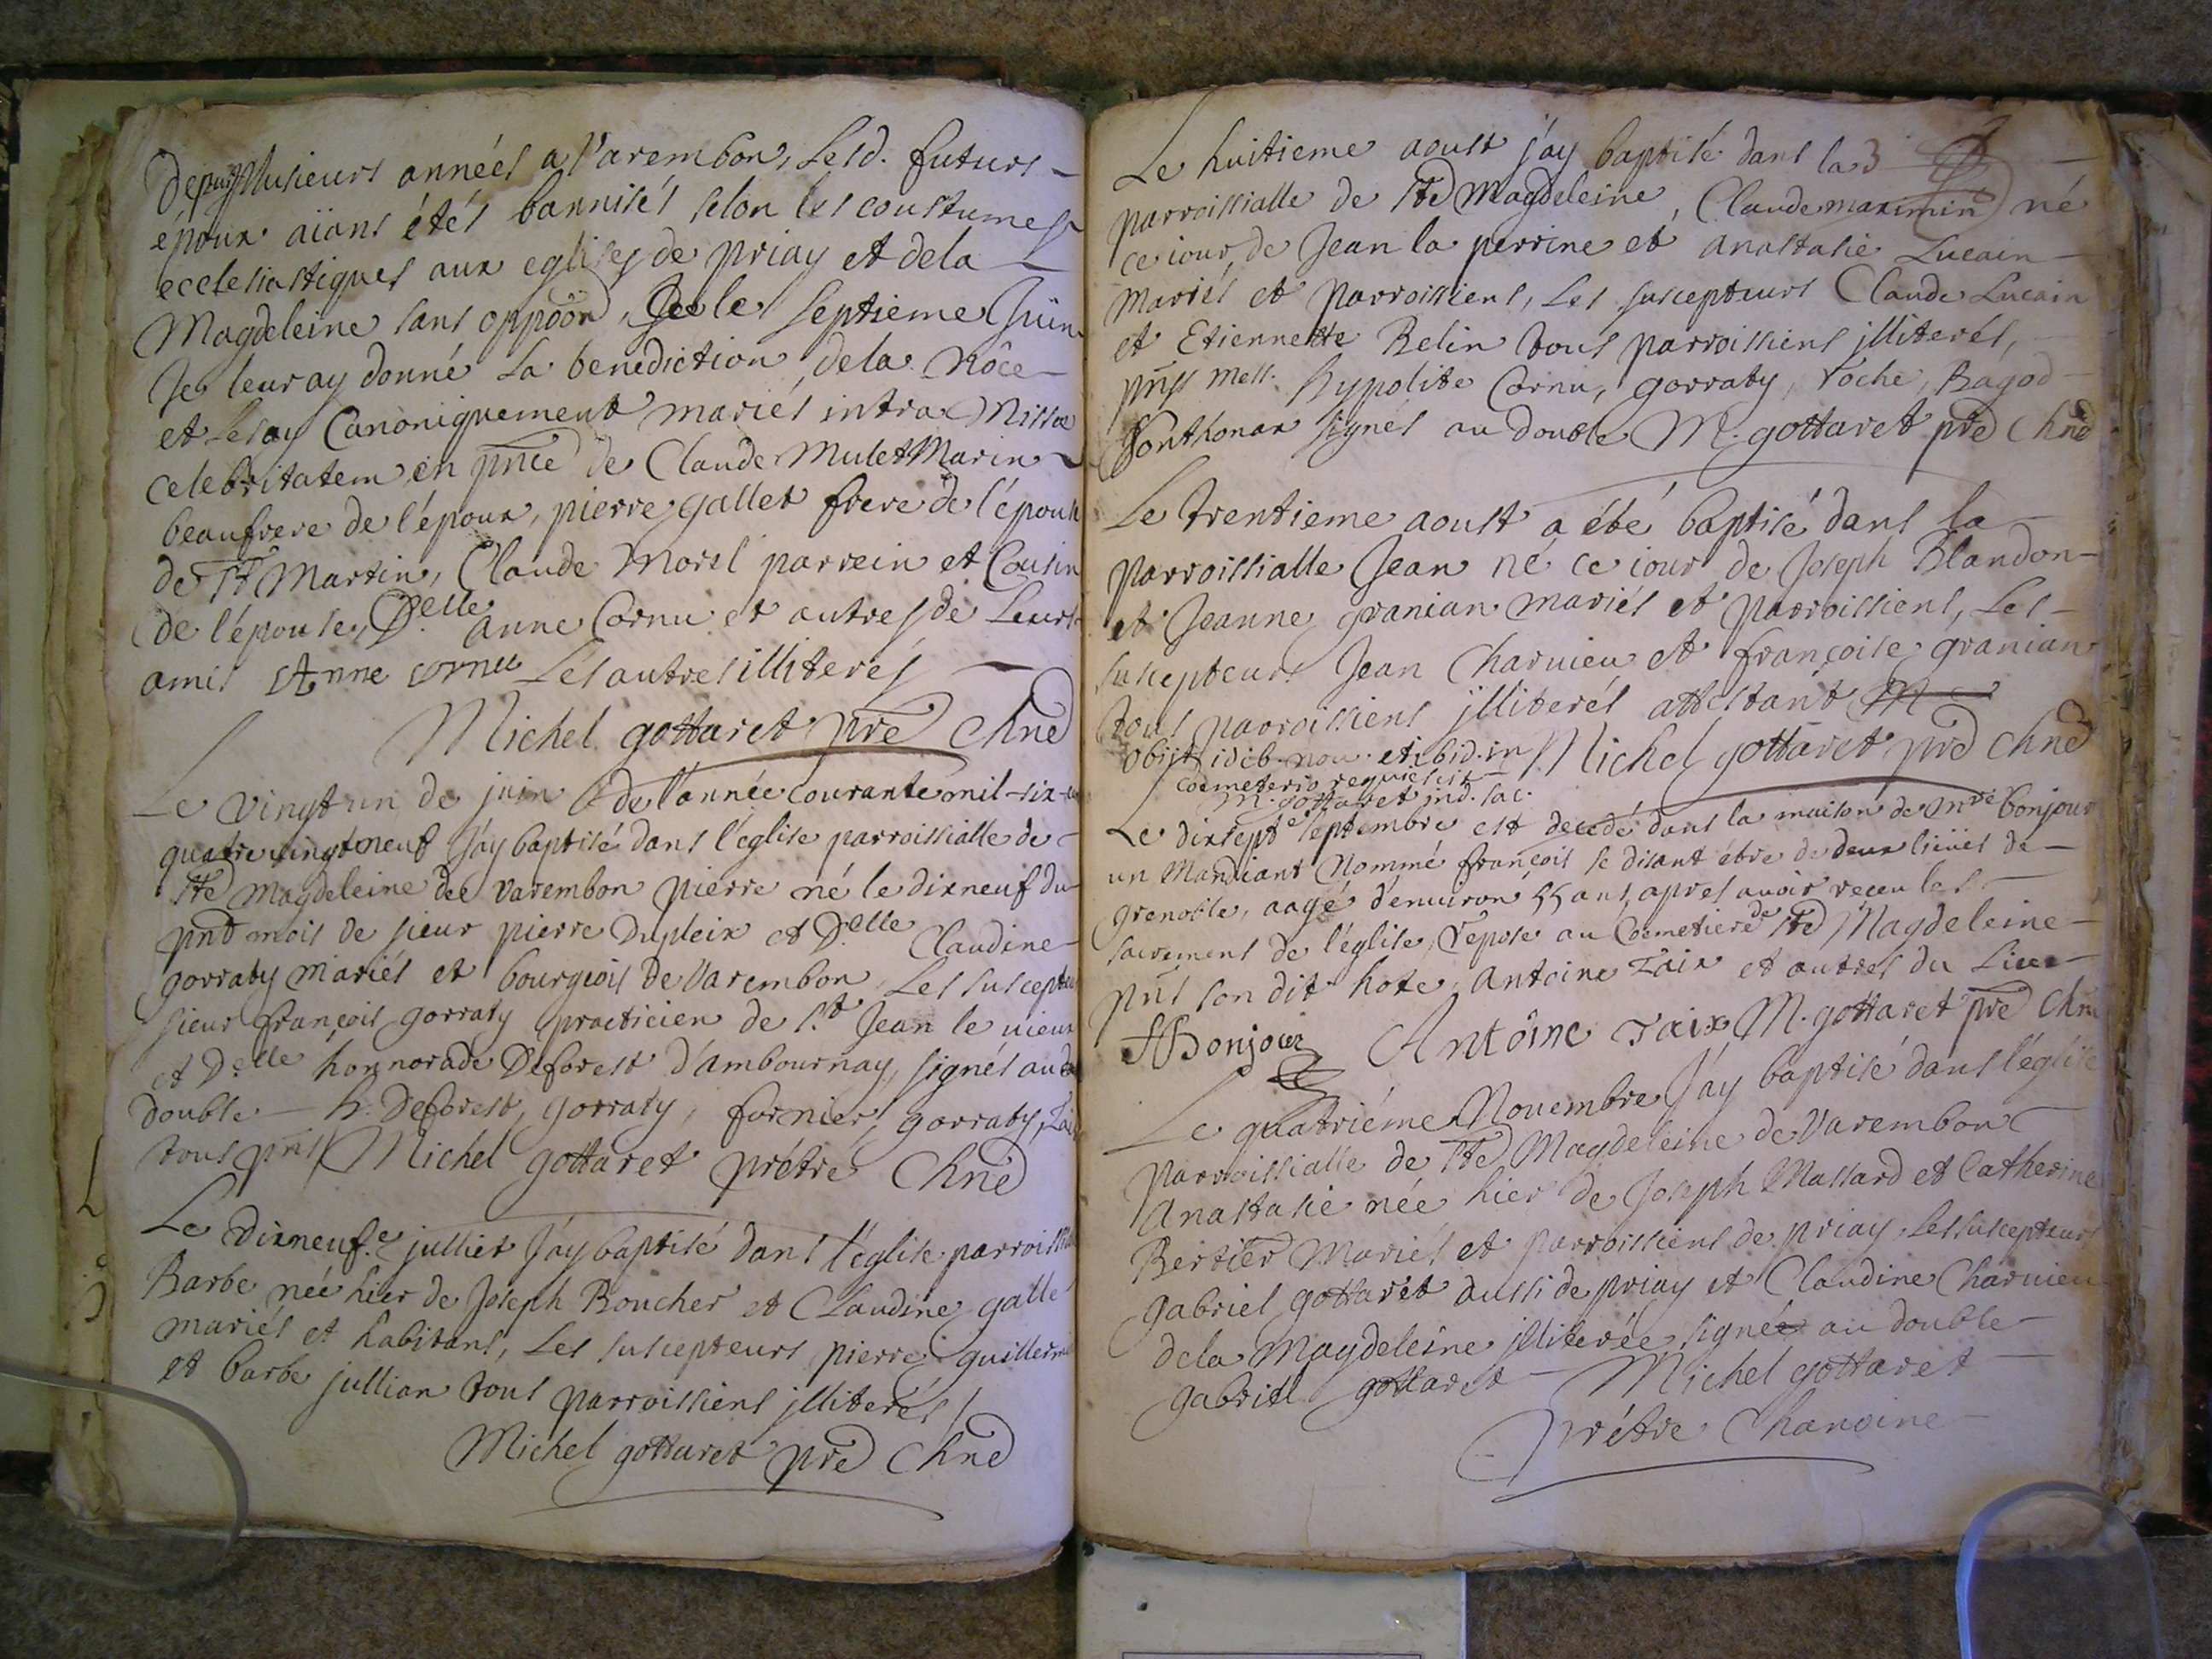 Depuis plusieurs années a Varembon, Lesd. futurs
époux aïans étés bannisés selon les coustumes
ecclesiastiques aux eglises de priay et dela
Magdeleine sans oppõõn, Le septieme Juin
Je leur ay donné La benediction dela Nôce
et Lesay Canoniquement mariés intra Missæ
celebritatem en pñce de Claude Mulet Marin
beaufrere de l'époux, pierre gallet frere de l'épouse
de St Martin, Claude Morel parrein et Cousin
de l'épouse, D.elle anne Cornu et autres de Leurs
amis Anne cornu Les autres illiterés
Michel gottaret pre Chne
Le vingt un de juin de l'année courante mil-six-
quatrevingtneuf J'ay baptisé dans l'église parroissialle de
Ste Magdeleine de Varembon pierre né le dixneuf du
pnt mois de sieur pierre Dupleix et D.elle Claudine
gorraty mariés et bourgeois de Varembon, Les suscepteurs
sieur françois gorraty practicien de St Jean le vieux
et D.elle honnorade Deforest d'ambournay, signés au
double h. Deforest, gorraty, fornier, gorraty,
tous pñs Michel gottaret prétre Chne
Le dixneuf.e julliet J'ay baptisé dans l'église parroissialle
Barbe née hier de Joseph Boucher et Claudine galle
mariés et habitans, Les suscepteurs pierre
et barbe jullian tous parroissiens illiterés
Michel gottaret pre Chne
Le huitieme aoust j'ay baptisé dans la
parroissialle de Ste Magdeleine, Claude maximin né
ce iour, de Jean la perrine et anastasie Lucain
Mariés et parroissiens, Les suscepteurs Claude Lucain
et Etiennette Belin tous parroissiens illiterés,
pñs Mess. hypolite Cornu, gorraty, roche, Bagod
Sonthonax signés au double M. gottaret pre Chne
Le trentieme aoust a été baptisé dans la
parroissialle Jean né ce iour de Joseph Blandon
et Jeanne granian mariés et parroissiens, Les
suscepteurs Jean Charuieu et françoise granian
tous parroissiens illiterés attestant
obiit 10 8b. nou. et ibid. in Michel gottaret pre Chne
coemeterio requiescit
M. gottaret ind. sac.
Le dixsept.e septembre est decedé dans la maison de Mre bonjour
un Mandiant Nommé françois se disant étre de deux lieües de
Grenoble, aagé d'enuiron 55 ans, apres auoir receu les
sacremens de l'église, repose au Coemetiere de Ste Magdeleine
pñs son dit hote, Antoine Taix et autres du Lieu
Bonjour Antoine Taix M. gottaret pre Chne
Le quatriéme Nouembre J'ay baptisé dans l'église
Parroissialle de Ste Magdeleine de Varembon
Anastasie née hier de Joseph Massard et Catherine
Bertier Mariés et parroissiens de priay, Les suscepteurs
Gabriel gottaret aussi de priay et Claudine Charuieu
dela Magdeleine illiterée, signé au double
gabriel gottaret Michel gottaret
prétre Chanoine